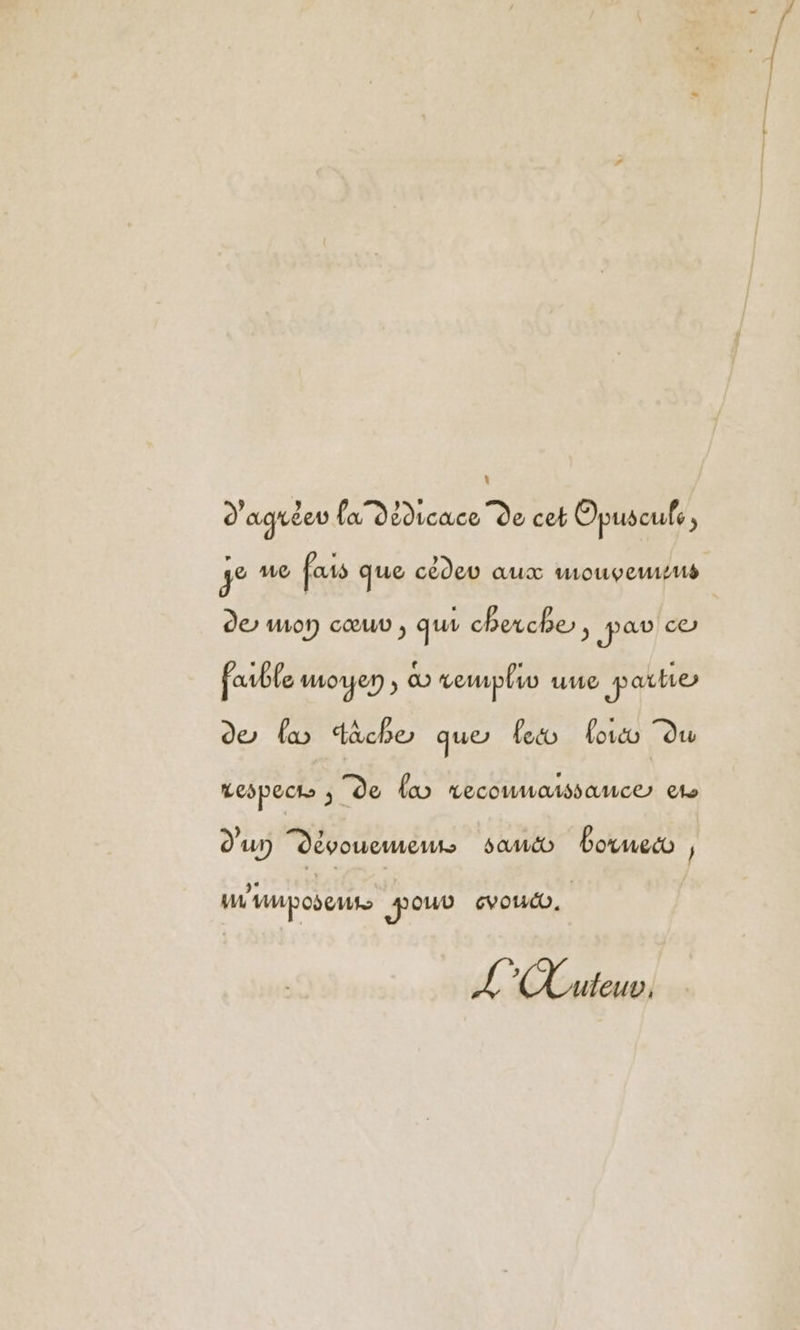 d'agréer la Dédicace De cet Opuscule,
je ne fais que céder aux mouvemens
de mon cœur, qui cherche, par ce
faible moyen, à remplir une partie
de la tâche que les lois Du
respect, De la reconnaissance et
d'un Dévouement sans bornes,
m'imposent pour vous.
L'Auteur.